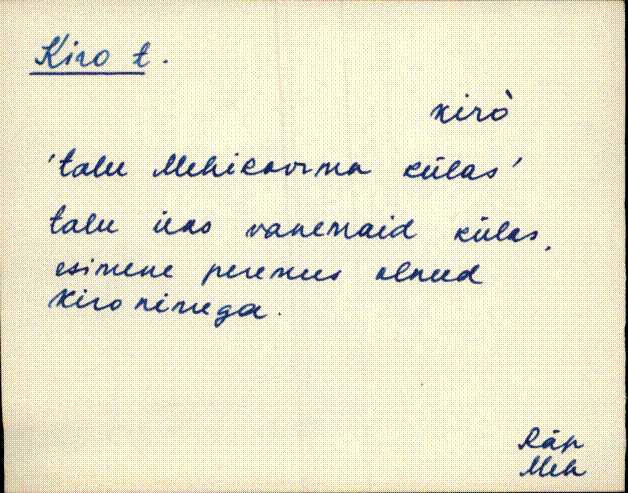 Kiro t.
kirò
'talu Mehikoorma külas'
talu üks vanemaid külas,
esimene peremees olnud
Kiro nimega.
Räp
Meh